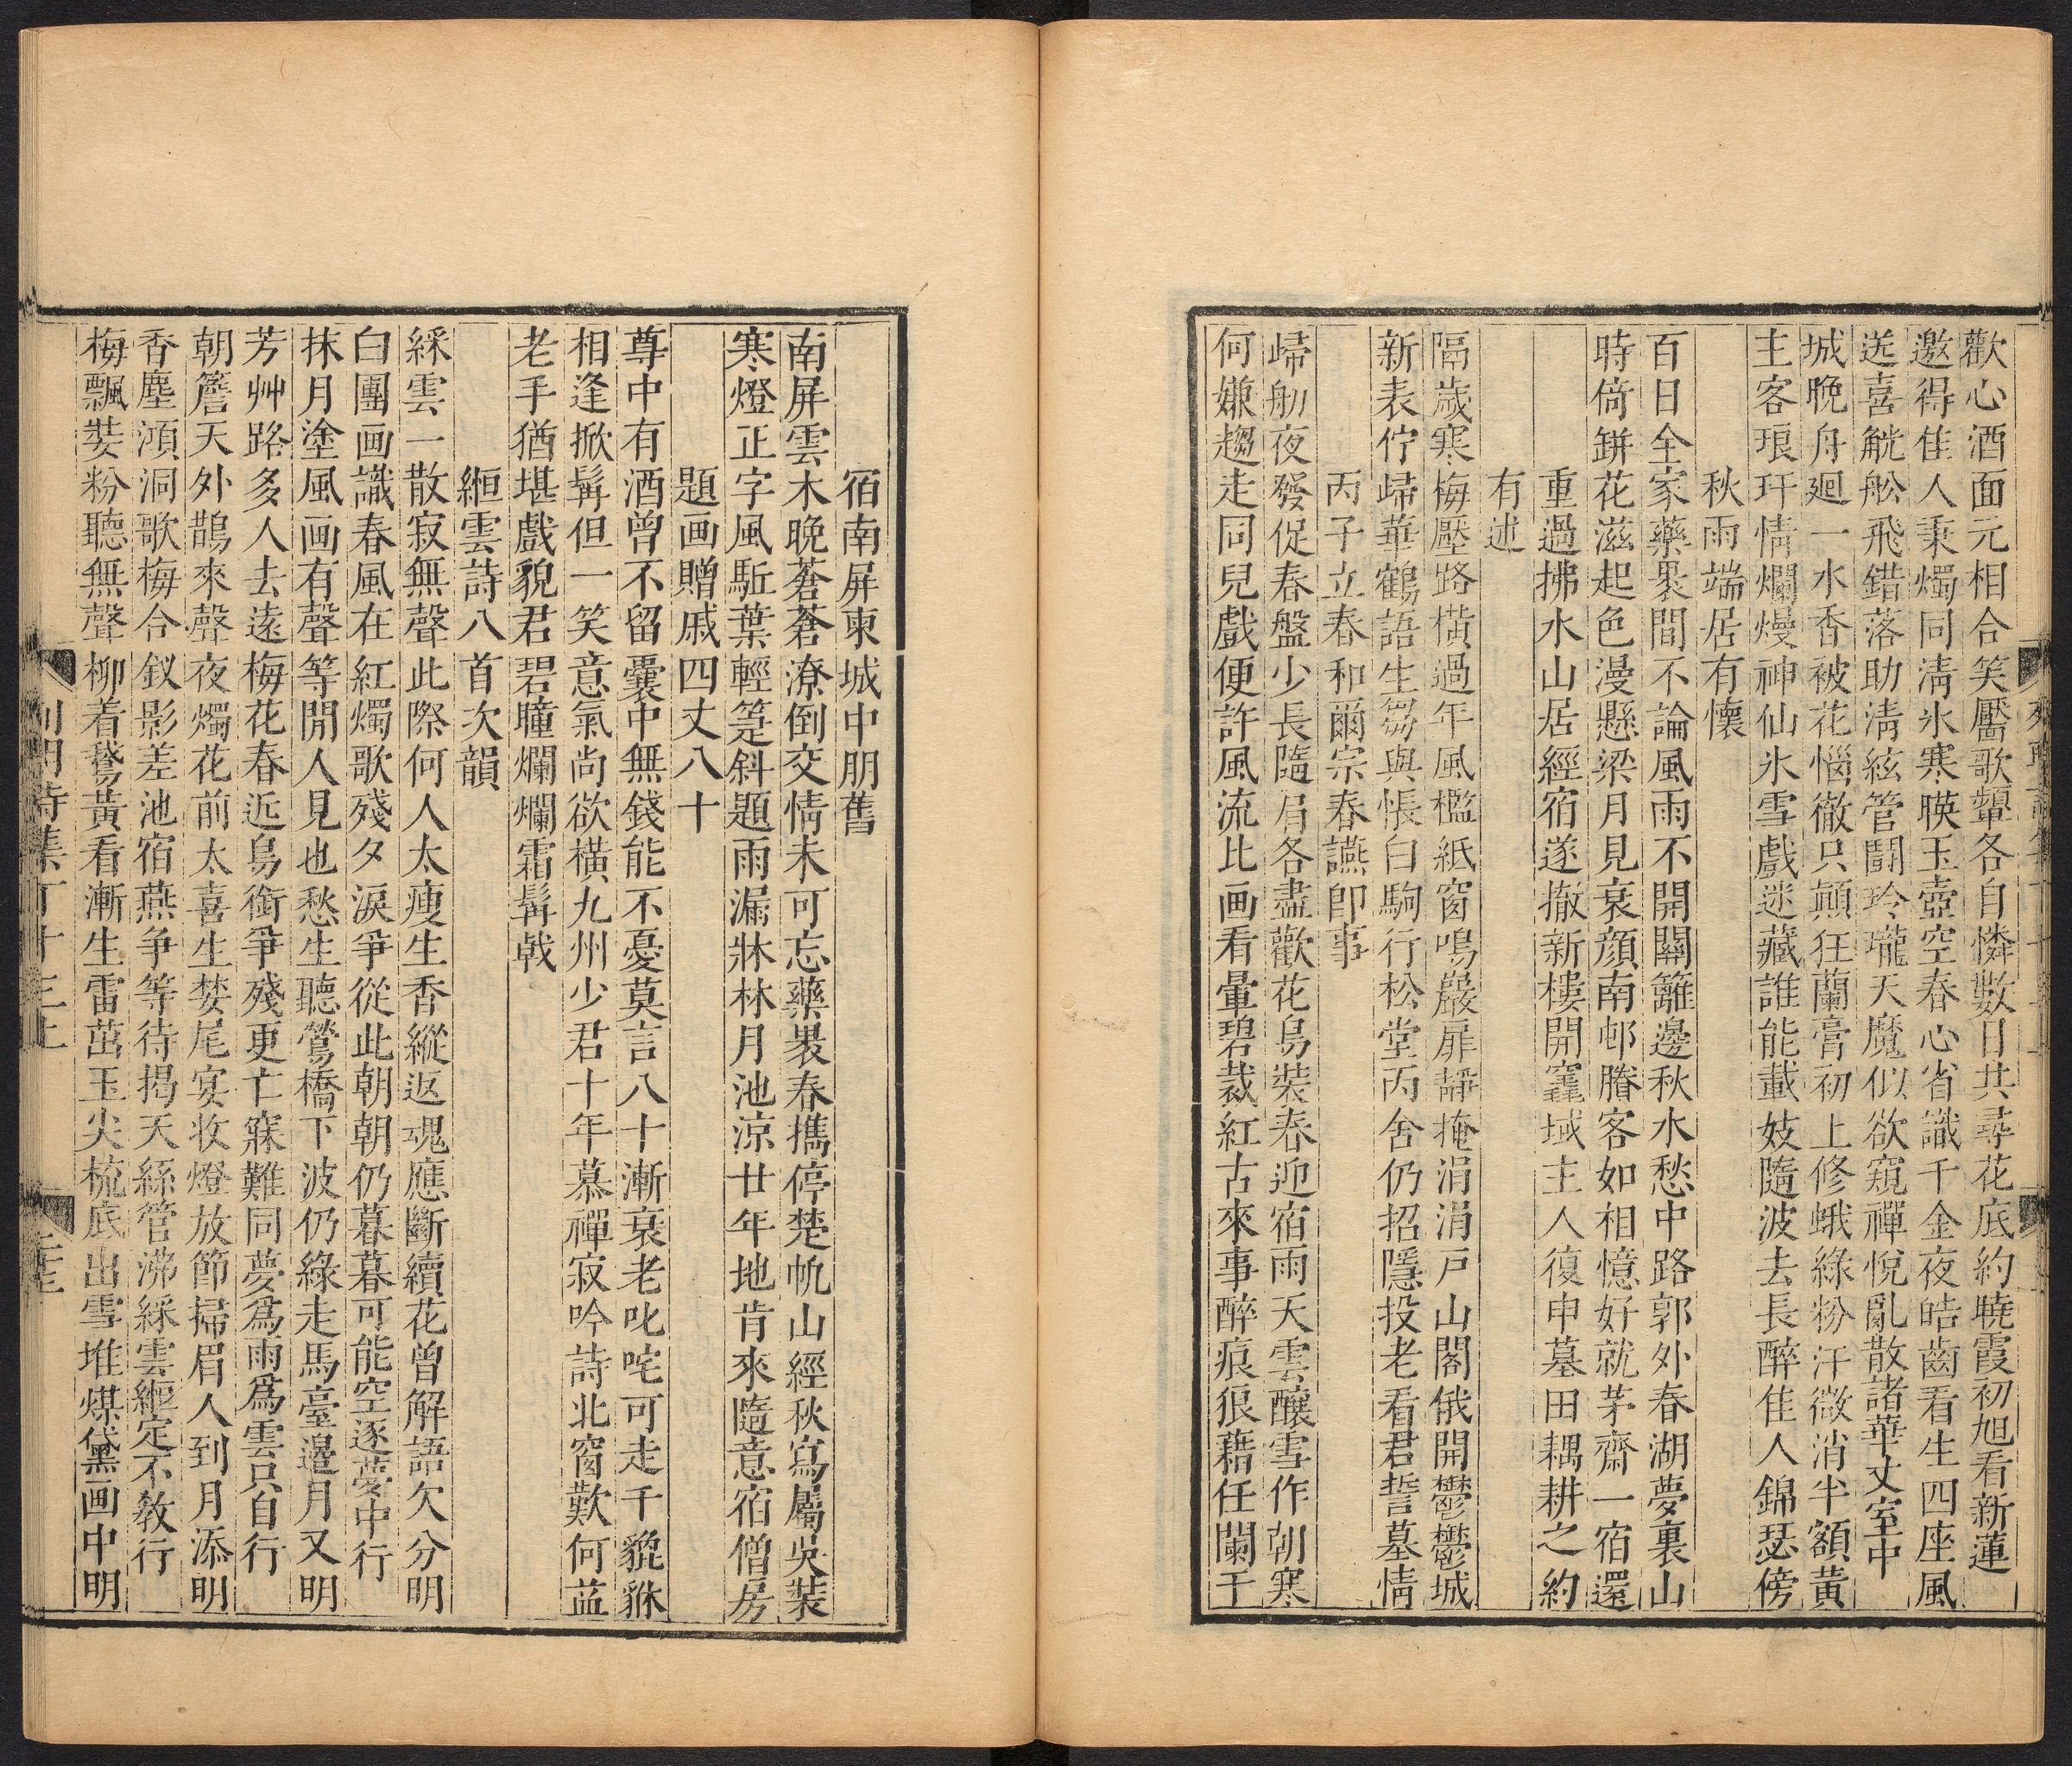 歡心酒面元相合笑靨歌顰各自憐數日共尋花底約曉霞初旭看新蓮
邀得佳人秉燭同淸氷寒暎玉壺空春心省識千金夜皓齒看生四座風
送喜觥舩飛錯落助淸絃管鬪玲瓏天魔似欲窺禪悅亂散諸華丈室中
城晚舟廻一水香被花惱徹只顛狂蘭膏初上修蛾綠粉汗微消半額黃
主客琅玕情爛熳神仙氷雪戲迷藏誰能載妓隨波去長醉佳人錦瑟傍
秋雨端居有懷
百日全家藥裹間不論風雨不開關籬邊秋水愁中路郭外春湖夢裏山
時倚缾花滋起色漫懸梁月見衰顏南邨賸客如相憶好就茅齋一宿還
重過拂水山居經宿遂撤新樓開竁域主人復申墓田耦耕之約
有述
隔歲寒梅壓路橫過年風檻紙窗鳴嚴扉靜掩涓涓戶山閣俄開鬱鬱城
新表佇歸華鶴語生芻與悵白駒行松堂丙舍仍招隱投老看君誓墓情
丙子立春和爾宗春讌卽事
歸舠夜發促春盤少長隨肩各盡歡花鳥裝春迎宿雨天雲釀雪作朝寒
何嫌趨走同兒戲便許風流比画看暈碧裁紅古來事醉痕狼藉任闌干
宿南屏柬城中朋舊
南屏雲木晚蒼蒼潦倒交情未可忘藥裹春攜停楚帆山經秋寫屬吳裝
寒燈正字風駈葉輕箑斜題雨漏牀林月池涼廿年地肯來隨意宿僧房
題画贈戚四丈八十
尊中有酒曾不留囊中無錢能不憂莫言八十漸衰老叱咤可走千貔貅
相逢掀髯但一笑意氣尚欲橫九州少君十年慕禪寂吟詩北窗歎何藍
老手猶堪戲貌君碧瞳爛爛霜髯戟
緪雲詩八首次韻
綵雲一散寂無聲此際何人太瘦生香縱返魂應斷續花曾解語欠分明
白團画識春風在紅燭歌殘夕淚爭從此朝朝仍暮暮可能空逐夢中行
抹月塗風画有聲等閒人見也愁生聽鶯橋下波仍綠走馬臺邊月又明
芳艸路多人去遠梅花春近鳥銜爭殘更亡寐難同夢爲雨爲雲只自行
朝簷天外鵲來聲夜燭花前太喜生婪尾宴收燈放節掃眉人到月添明
香塵澒洞歌梅合釵影差池宿燕爭等待揭天絲管沸綵雲緪定不敎行
梅飄粧粉聽無聲柳着鵞黃看漸生雷茁玉尖梳底出雪堆煤黛画中明